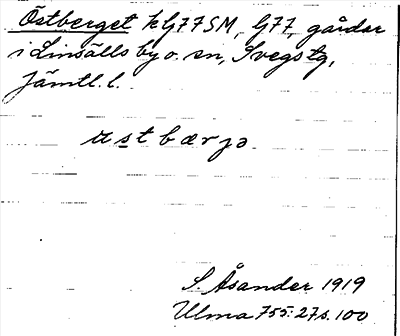 Östberget kG77SM, G77, gårdar
i Linsälls by o. sn, Svegs tg,
Jämtl. l.
ustbærjə.
S. Åsander 1919
Ulma 755:27 s. 100